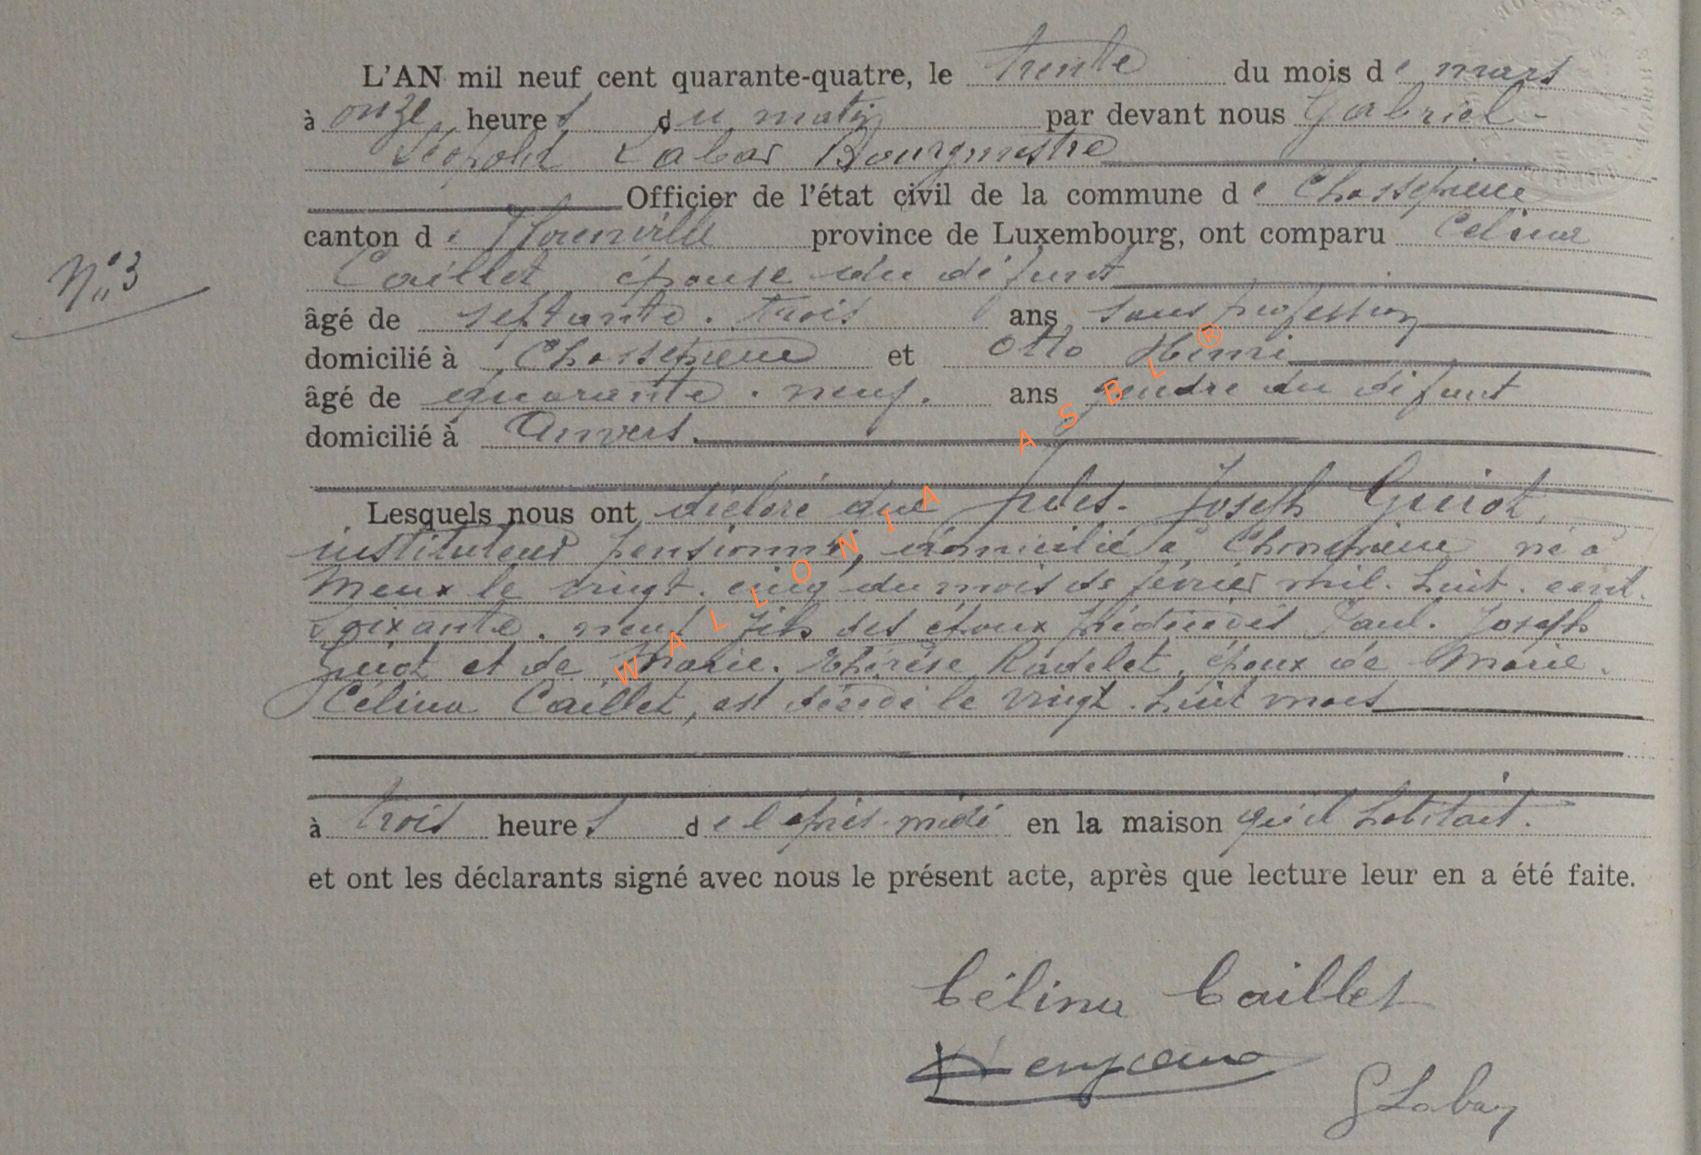 L'AN mil neuf cent quarante-quatre, le trente du mois de mars
à onze heures du matin par devant nous Gabriel-
Léopold Labar Bourgmestre
Officier de l'état civil de la commune de Chassepierre
canton de Florenville province de Luxembourg, ont comparu Célina
N° 3
Caillet épouse du défunt
âgé de septante-trois ans sans profession
domicilié à Chassepierre et Otto Henri
âgé de quarante-neuf. ans gendre du défunt
domicilié à Anvers.
Lesquels nous ont déclaré que Joseph Guiot,
instituteur pensionné, domicilié à Chassepierre né à
Meux le vingt-cinq du mois de février mil-huit-cent-
soixante-neuf fils des époux prédécédés Paul-Joseph
Guiot et de Marie-Thérèse Radelet, époux de Marie-
Célina Caillet, est décédé le vingt-huit mars
à trois heures de l'après-midi en la maison qu'il habitait.
et ont les déclarants signé avec nous le présent acte, après que lecture leur en a été faite.
Célina Caillet
G Labar
WALLONIA ASBL ®